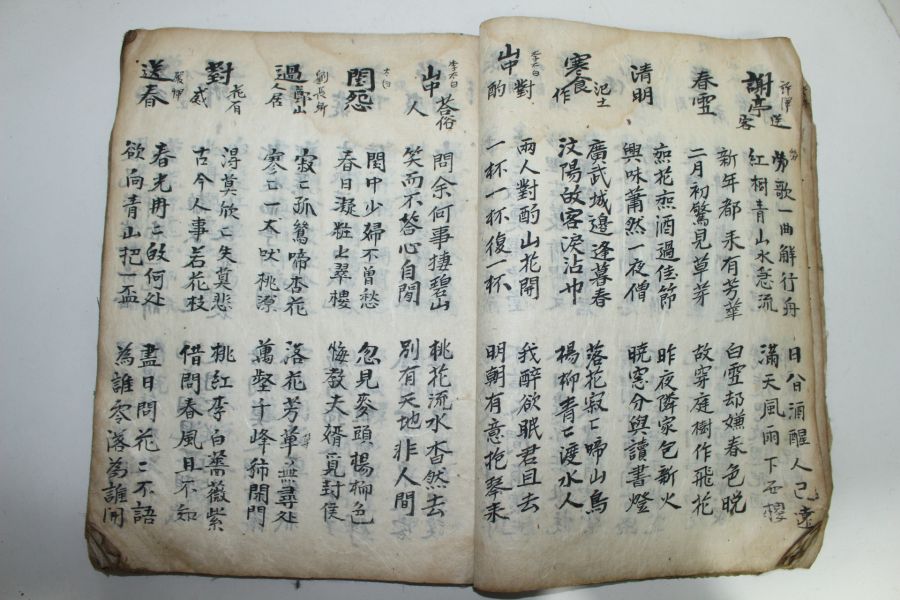 謝亭送客
許渾
勞歌一曲解行舟
紅樹青山水急流
日酒醒人已遠
滿天風雨下西樓
春雪
新年都未有芳華
二月初驚見草芽
白雪却嫌春色晩
故穿庭樹作飛花
清明
無花無酒過佳節
興味蕭然一夜僧
昨夜隣家乞新火
曉窓分與讀書燈
寒食汜上作
廣武城邊逢暮春
汶陽故客淚沾巾
落花寂〻啼山鳥
楊柳青〻渡水人
山中對酌
李太白
兩人對酌山花開
一杯一杯復一杯
我醉欲眠君且去
明朝有意抱琴來
山中答俗人
李太白
問余何事捿碧山
笑而不答心自閒
桃花流水杳然去
別有天地非人間
閨怨
太白
閨中少婦不曾愁
春日凝粧上翠樓
忽見麥頭楊柳色
悔敎夫婿覓封侯
過鄭山人居
劉長卿
寂〻孤鶯啼杏花
寥〻一犬吠桃源
落花芳草無尋处
萬壑千峰獨閉門
對花有感
得莫欣〻失莫悲
古今人事若花枝
桃紅李白薔薇紫
借問春風且不知
送春
嚴惲
春光冉〻故何处
欲向青山把一盃
盡日問花〻不語
為誰零落為誰開